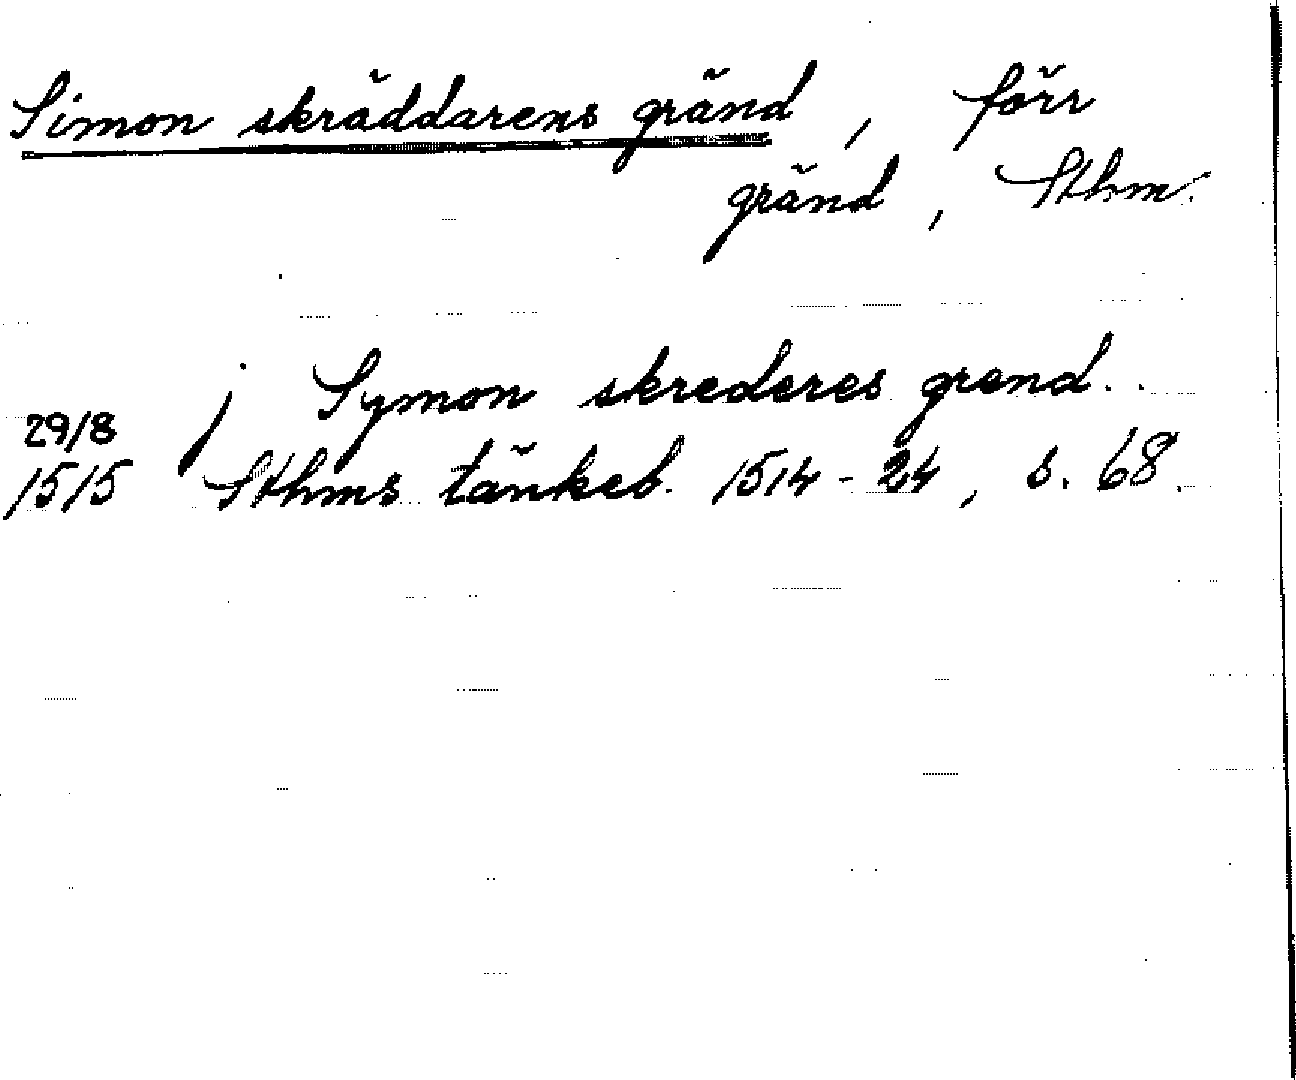 Simon skräddarens gränd, förr
gränd, Sthm.
j Symon skrederes grend.
29/8
1515 Sthms tänkeb. 1514-24, s. 68.